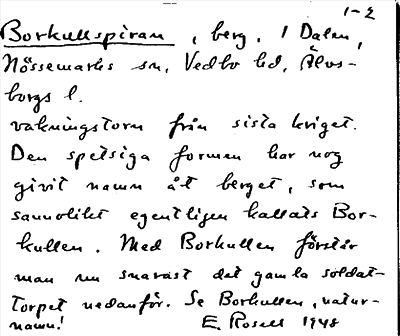 1-2
Borkullspiran, berg, i Dalen,
Nössemarks sn, Vedbo hd, Älvs-
borgs l.
vakningstorn från sista kriget.
Den spetsiga formen har nog
givit namn åt berget, som
sannolikt egentligen kallats Bor-
kullen. Med Borkullen förstår
man nu snarast det gamla soldat-
torpet nedanför. Se Borkullen, natur-
namn! E. Rosell 1948